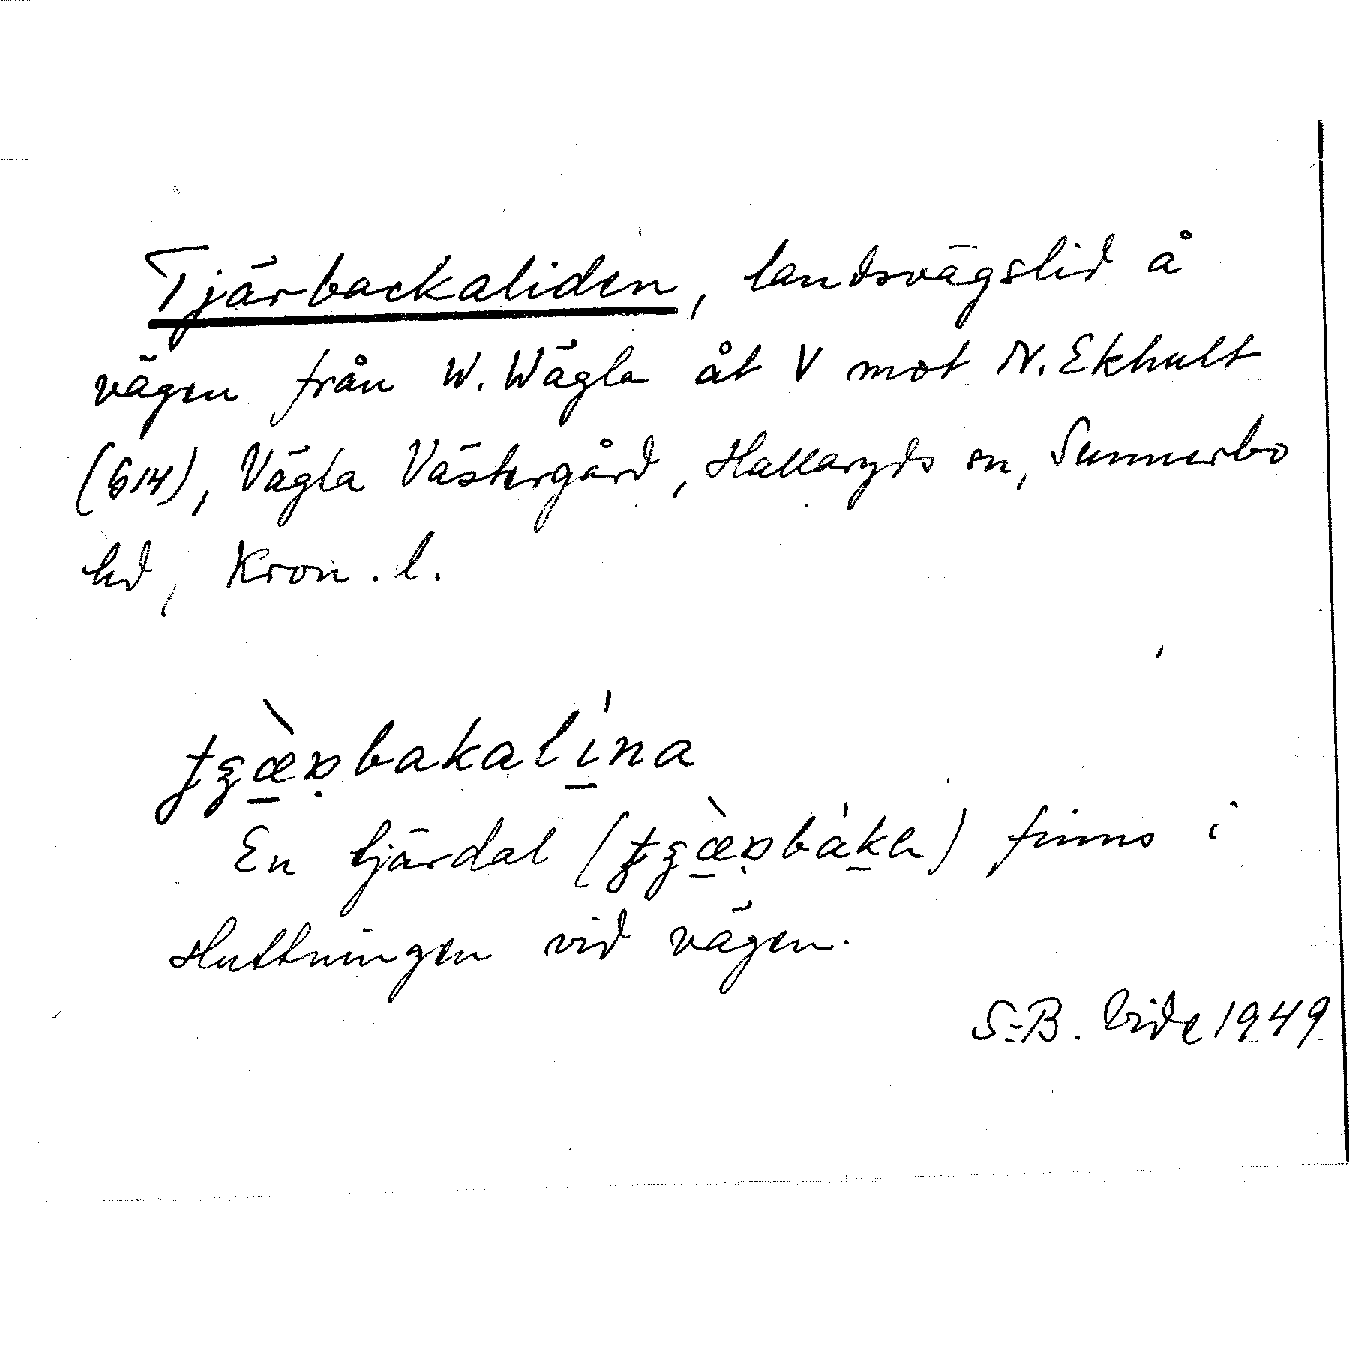 Tjärbackaliden, landsvägslid å
vägen från W. Wägla åt V mot N. Ekhult
(G14), Vägla Västergård, Hallaryds sn, Sunnerbo
hd, Kron. l.
bakalina
En tjärdal () finns i
sluttningen vid vägen.
S-B. Vide 1949